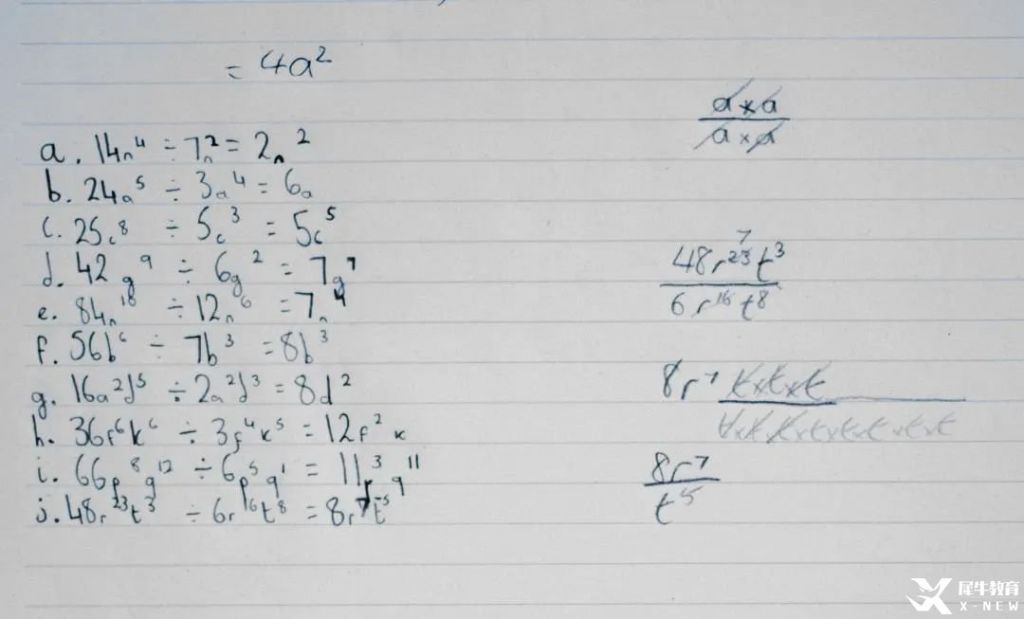 = 4a²
a. 14n⁴ ÷ 7n² = 2n²
b. 24a⁵ ÷ 3a⁴ = 6a
c. 25c⁸ ÷ 5c³ = 5c⁵
d. 42g⁹ ÷ 6g² = 7g⁷
e. 84n¹⁰ ÷ 12n⁶ = 7n⁴
f. 56b⁶ ÷ 7b³ = 8b³
g. 16a²d⁵ ÷ 2a²d³ = 8d²
h. 36f⁶k⁶ ÷ 3f⁴k⁵ = 12f²k
i. 66p⁸q¹² ÷ 6p⁵q¹ = 11p³q¹¹
j. 48r²³t³ ÷ 6r¹⁶t⁸ = 8r⁷t⁻⁵
a × a
a × a
7
48r²³t³
6r¹⁶t⁸
8r⁷ t×t×t
t×t×t×t×t×t×t×t
8r⁷
t⁵
犀牛教育
X-NEW